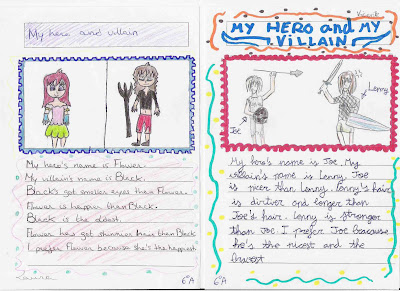 My hero and villain
My hero's name is Flower.
My villain's name is Black.
Black's got smaller eyes than Flower.
Flower is happier than Black.
Black is the oldest.
Flower has got skinnier than Black
I prefer Flower because she's the happiest
Laura
6ºA
MY HERO and MY
VILLAIN
Joe
Lenny
My hero's name is Joe. My
villain's name is Lenny. Joe
is nicer than Lenny. Lenny's hair
is dirtier and longer than
Joe's hair. Lenny is stronger
than Joe. I prefer Joe because
he's the nicest and the
bravest
6ºA